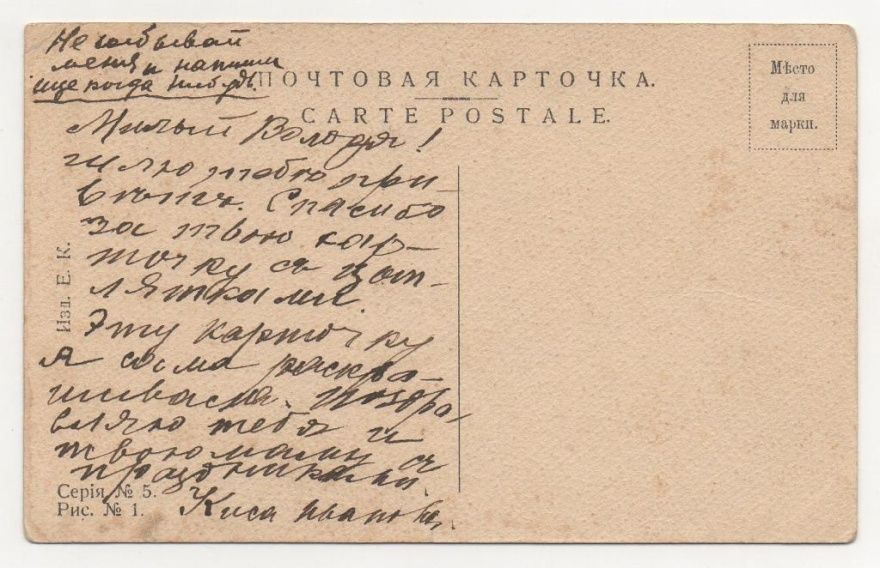 Не забывай
меня и напиши
еще когда нибудь.
ПОЧТОВАЯ КАРТОЧКА.
CARTE POSTALE.
Мѣсто
для
марки.
Милый Володя!
шлю тебѣ при-
вѣтъ. Спасибо
за твою кар-
точку съ цып-
лятками
Эту карточку
я сама раскра-
шивала. Поздра-
вляю тебя и
твою маму съ
праздниками.
Киса Иванова.
Изд. Е. К.
Серія № 5.
Рис. № 1.